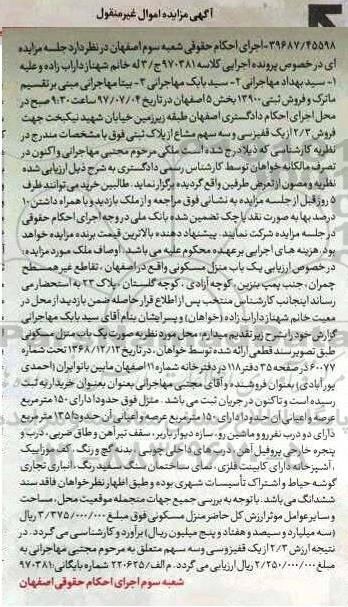 آگهی مزایده اموال غیرمنقول
۳۹۶۸۷/۴۵۵۹۸-اجرای احکام حقوقی شعبه سوم اصفهان در نظر دارد جلسه مزایده
ای در خصوص پرونده اجرایی کلاسه ۹۷۰۳۸۱ج/۳ له خانم شهناز داراب زاده و علیه
۱- سید بهداد مهاجرانی ۲- سید بابک مهاجرانی ۳- بیتا مهاجرانی مبنی بر تقسیم
ماترک و فروش ثبتی ۱۳۹۰۰ بخش ۵ اصفهان در تاریخ ۹۷/۰۷/۰۴ ساعت ۹:۳۰ صبح در
محل اجرای احکام دادگستری اصفهان طبقه زیرزمین خیابان شهید نیکبخت جهت
فروش ۲/۳ از یک قفیز سی و سه سهم مشاع از پلاک ثبتی فوق با مشخصات مندرج در
نظریه کارشناسی که ذیلا درج شده است ملکی مرحوم مجتبی مهاجرانی و اکنون در
تصرف مالکانه خواهان توسط کارشناس رسمی دادگستری به شرح ذیل ارزیابی شده
نظریه و مصون از تعرض طرفین واقع گردیده برگزار نماید. طالبین خرید می توانند ظرف
۵ روز قبل از جلسه مزایده به نشانی فوق مراجعه و از ملک بازدید و با همراه داشتن ۱۰
درصد بها به صورت نقد یا چک تضمین شده بانک ملی در وجه اجرای احکام حقوقی
در جلسه مزایده شرکت نمایند. پیشنهاد دهنده بالاترین قیمت برنده مزایده خواهد
بود. هزینه های اجرایی بر عهده محکوم علیه می باشد. اوصاف ملک مورد مزایده :
در خصوص ارزیابی یک باب منزل مسکونی واقع در اصفهان ، تقاطع غیرهمسطح
چمران، جنب پمپ بنزین، کوچه آزادی، کوچه گلستان، پلاک ۲۳ به استحضار می
رساند اینجانب کارشناس منتخب پس از اطلاع قرار حاصله ضمن بازدید از محل در
معیت خانم شهناز داراب زاده (خواهان) و پسر ایشان بنام آقای سید بابک مهاجرانی
گزارش خود را بشرح زیر تقدیم میدارم: محل مورد نظر به صورت یک باب منزل مسکونی
طبق تصویر سند قطعی ارائه شده توسط خواهان ، در تاریخ ۱۳۶۸/۱۲/۱۲ تحت شماره
۶۰۰۷۷ در صفحه ۳۵ دفتر ۱۱۸ در دفترخانه شماره ۱۱ اصفهان مابین بانو ایران (احمدی
پورآبادی) بعنوان فروشنده و آقای مجتبی مهاجرانی بعنوان بعنوان خریدار به ثبت
رسیده است و تاکنون در جریان ثبت می باشد . منزل فوق حدودا دارای ۱۵۰ مترمربع
عرصه و اعیانی آن حدودا دارای ۱۵۰ مترمربع عرصه و اعیانی آن حدودا ۱۳۵ مترمربع
دارای دو درب نفررو و ماشین رو، سازه دیوار باربر، سقف تیرآهن و طاق ضربی، درب و
پنجره خارجی پروفیل آهن، درب های داخلی چوبی، بدنه گچ و رنگ، کف موزاییک
، آشپزخانه دارای کابینت فلزی، نمای ساختمان سنگ سفید رنگ، انباری تجاری
گوشه حیاط و اشتراک تأسیسات شهری بوده و طبق اظهار نظر خواهان فاقد سند
ششدانگ می باشد. با توجه به بررسی جمیع جهات منجمله موقعیت محل، مساحت
و سایر عوامل موثر ارزش کل حاضر منزل مسکونی فوق مبلغ ۳/۳۷۵/۰۰۰/۰۰۰ ریال
(سه میلیارد و سیصد و هفتاد و پنج میلیون ریال) برآورد و کارشناسی می گردد. در
نتیجه ارزش ۲/۳ از یک قفیز و سی و سه سهم متعلق به مرحوم مجتبی مهاجرانی به
مبلغ ۲/۲۵۰/۰۰۰/۰۰۰ ریال ارزیابی می گردد. م الف/۲۲۰۶۲۵ شماره بایگانی: ۹۷۰۳۸۱
شعبه سوم اجرای احکام حقوقی اصفهان